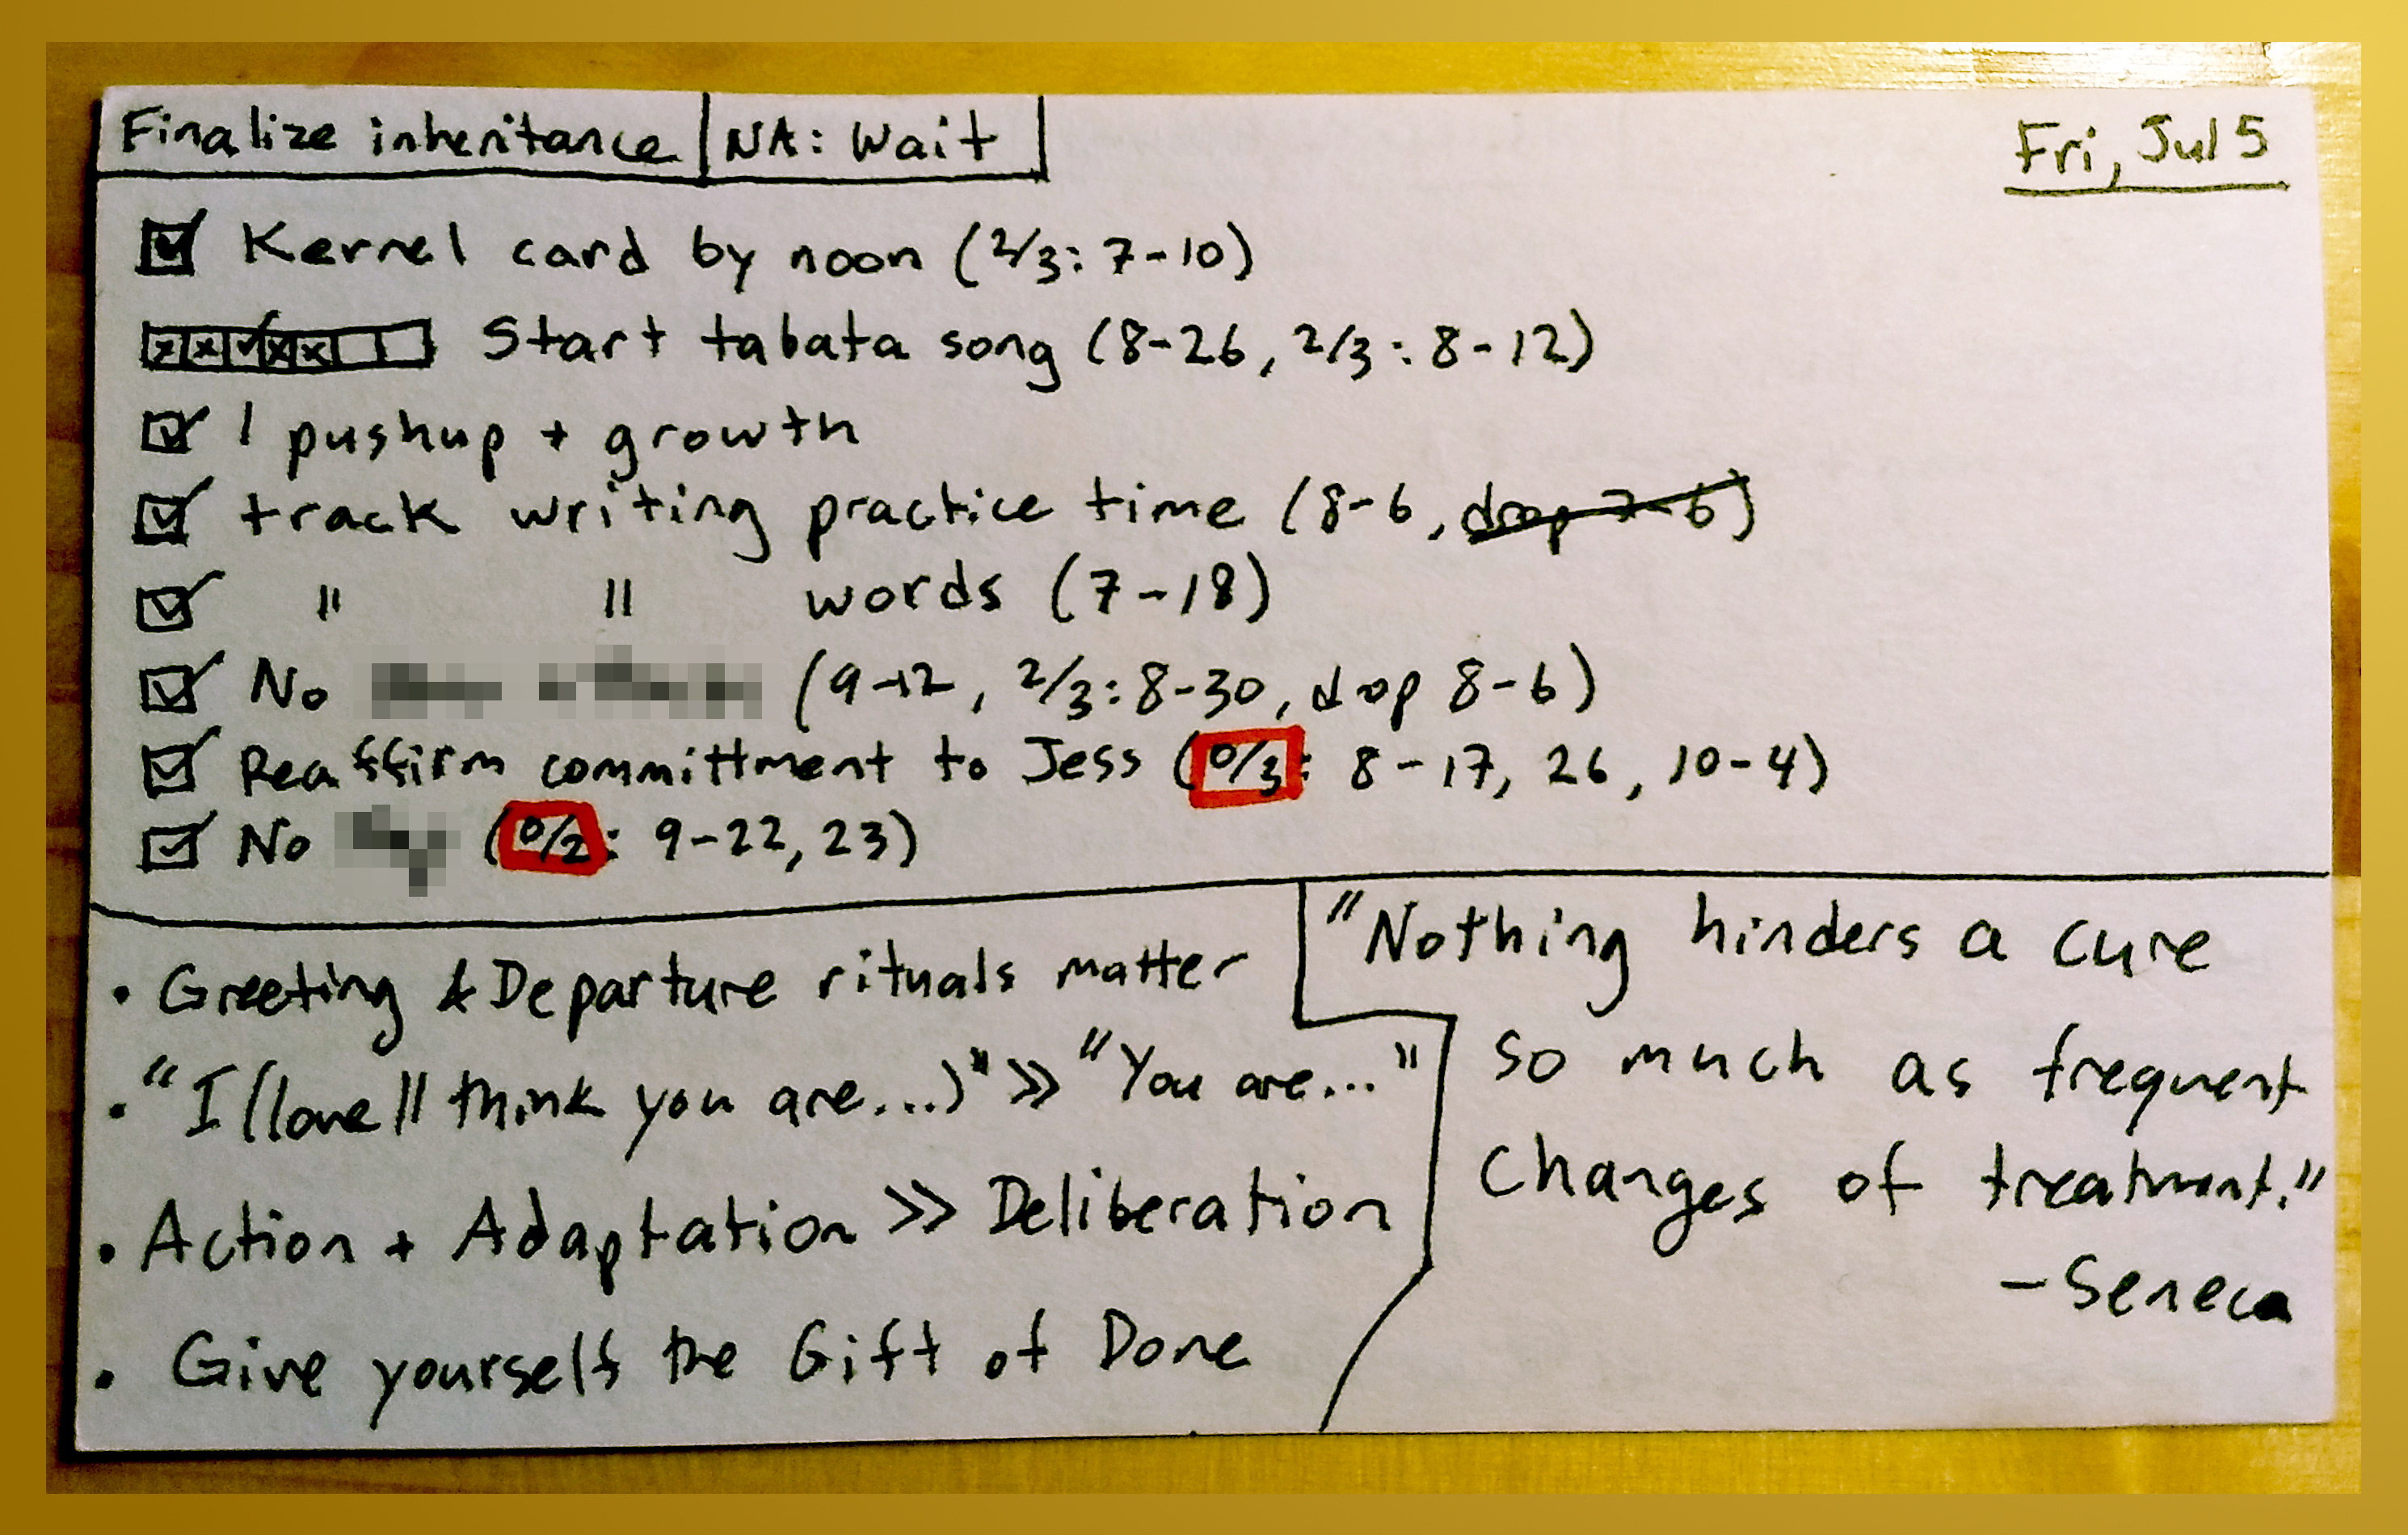 Finalize inheritance | NA: Wait
Fri, Jul 5
Kernel card by noon (2/3: 7-10)
Start tabata song (8-26, 2/3: 8-12)
1 pushup + growth
track writing practice time (8-6, drop 7-6)
" " words (7-18)
No (9-12, 2/3: 8-30, drop 8-6)
Reaffirm committment to Jess (0/3: 8-17, 26, 10-4)
No (0/2: 9-22, 23)
• Greeting & Departure rituals matter
• "I (love || think you are...)" >> "You are..."
• Action + Adaptation >> Deliberation
• Give yourself the Gift of Done
"Nothing hinders a cure
so much as frequent
changes of treatment."
- Seneca